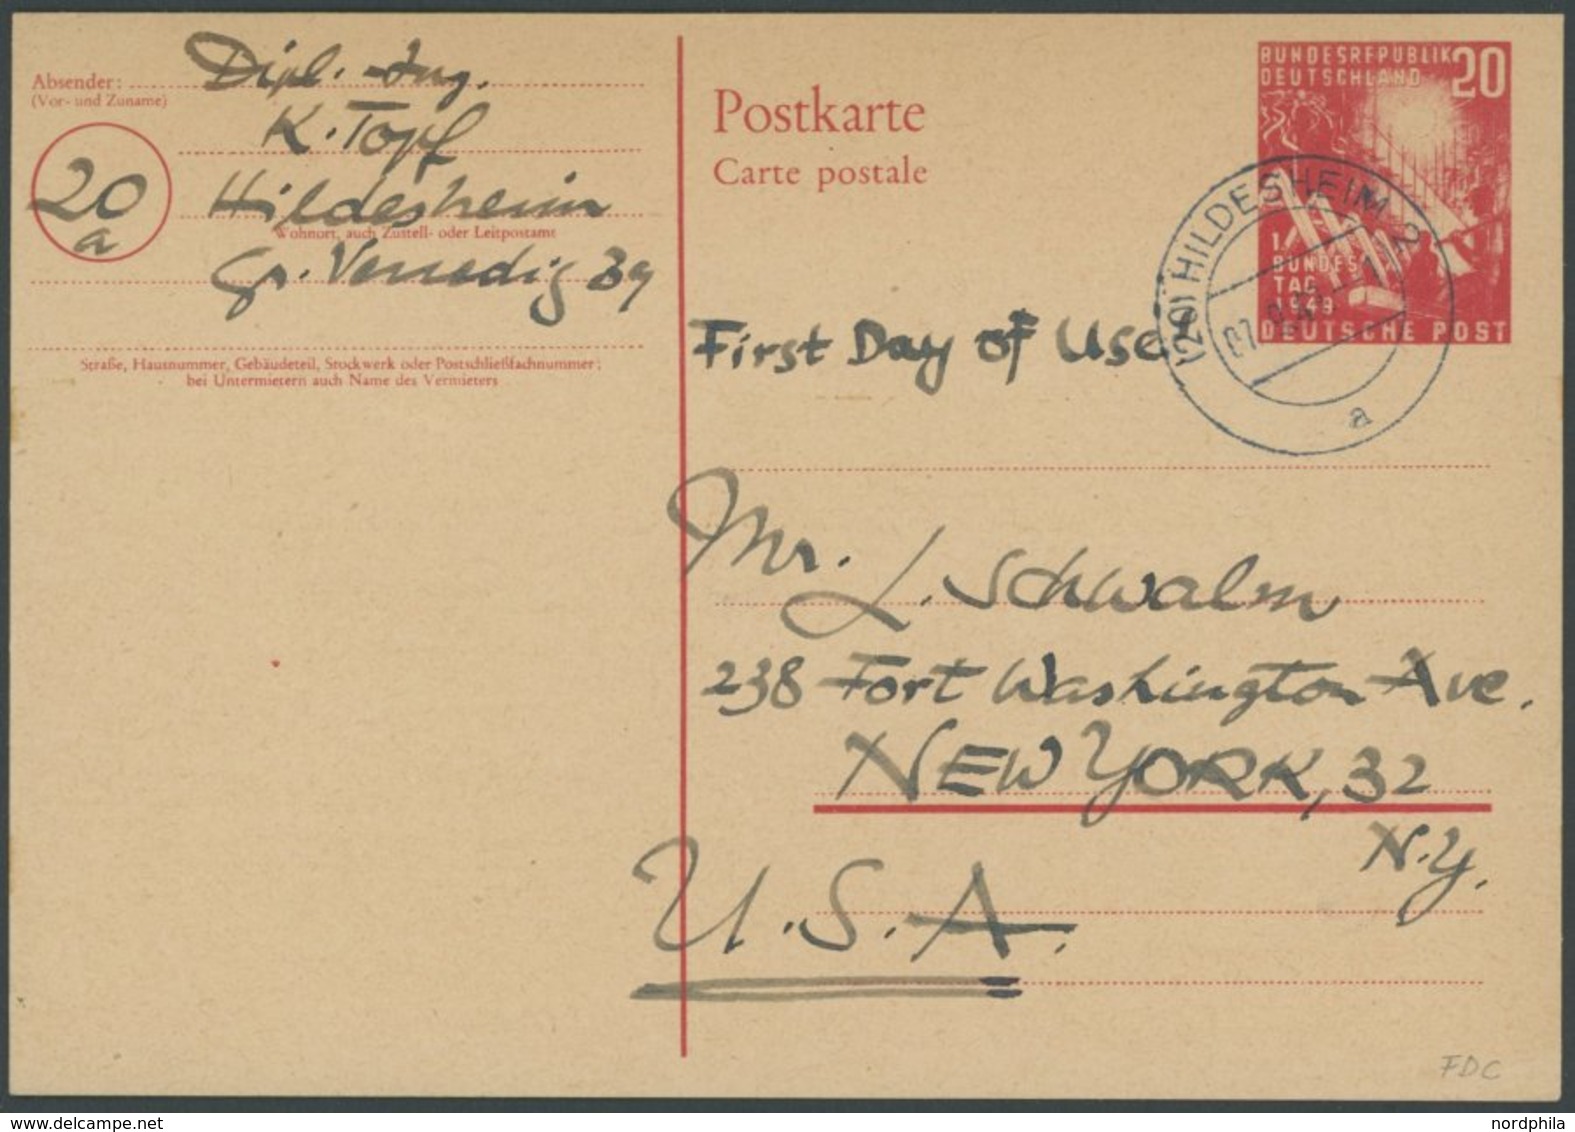 Absender:
(Vor- und Zuname)
Dipl.-Ing.
K. Topf
20
a
Hildesheim
Wohnort, auch Zustell- oder Leitpostamt
Gr. Venedig 39
Straße, Hausnummer, Gebäudeteil, Stockwerk oder Postschließfachnummer;
bei Untermietern auch Name des Vermieters
Postkarte
Carte postale
BUNDESREPUBLIK 20
DEUTSCHLAND
1.
BUNDES
TAG
1949
DEUTSCHE POST
(20) HILDESHEIM 2
a
First Day of Use
Mr.
L. Schwalm
238 Fort Washington Ave.
NEW YORK, 32
N.Y.
U.S.A.
FDC
nordphila